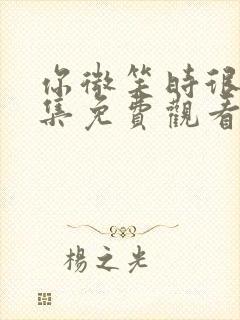 你微笑時很
集免費觀看
楊之光